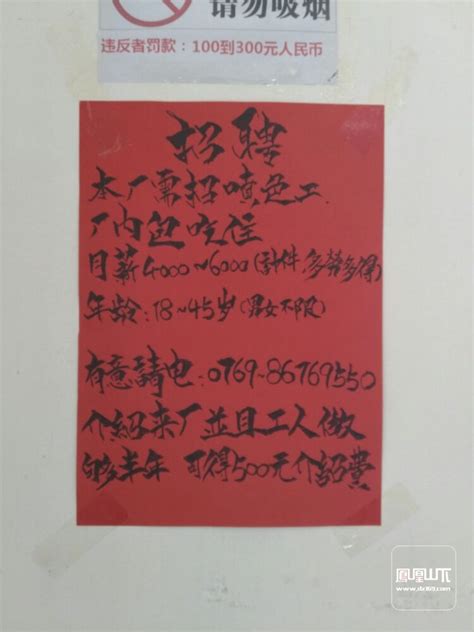 请勿吸烟
违反者罚款：100到300元人民币
招聘
本厂需招喷色工
厂内包吃住
月薪4000~6000(計件.多劳多得)
年龄:18~45岁(男女不限)
有意請电:0769-86769550
介紹来厂並且工人做
够半年 可得500元介紹費
凤凰山下